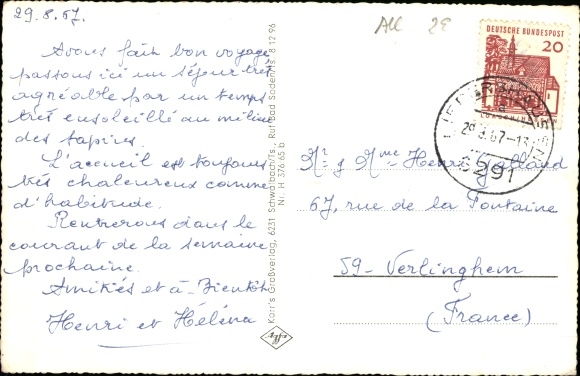 29.8.67.
Avons fait bon voyage,
passons ici un séjour très
agréable par un temps
très ensoleillé au milieu
des sapins.
L'accueil est toujours
très chaleureux comme
d'habitude.
Rentrerons dans le
courant de la semaine
prochaine.
Amitiés et à-Bientôt
Henri et Héléna
Karr's Großverlag, 6231 Schwalbach/Ts., Ruf Bad Soden/Ts. 8 12 96
Nr. H 376.65 b
All 2E
DEUTSCHE BUNDESPOST
20
29.8.67-13
6291
Mr & Mme Henri Galland
67, rue de la Fontaine
59- Verlinghem
(France)